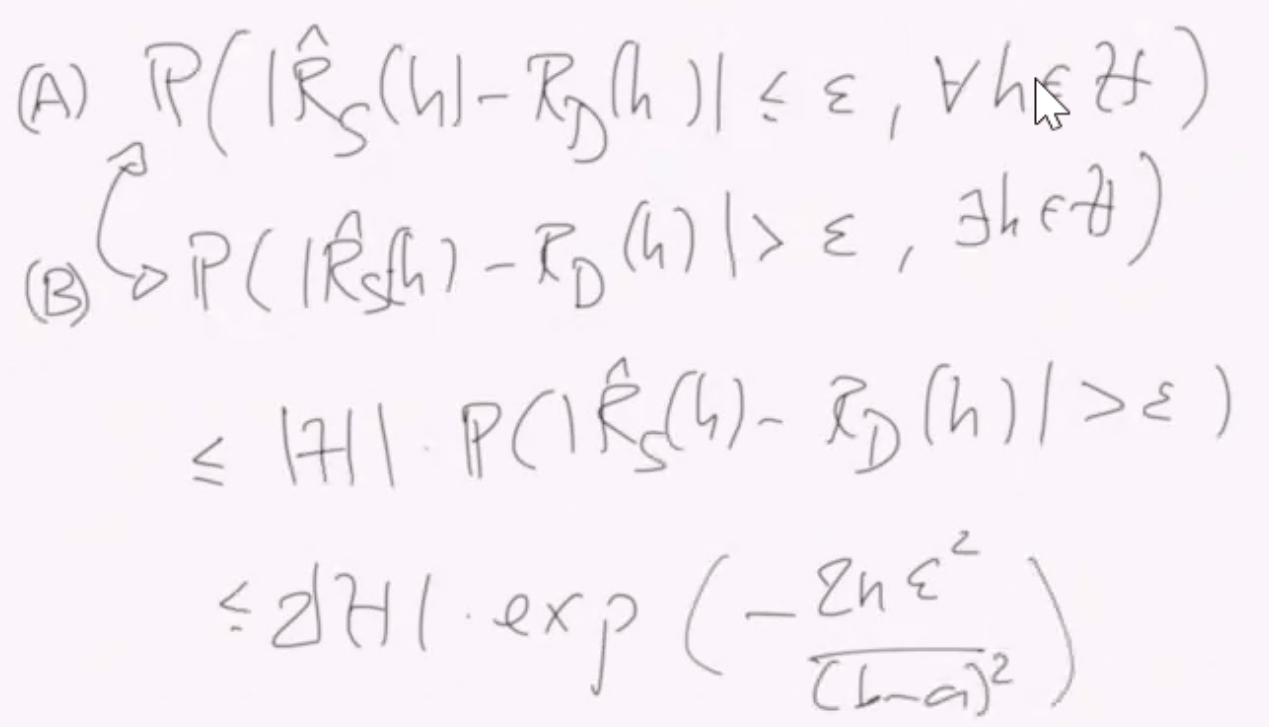 (A) ℙ(|R̂_S(h)-R_D(h)| ≤ ε, ∀h∈ℋ)
(B) ℙ(|R̂_S(h)-R_D(h)|> ε, ∃h∈ℋ)
≤ |ℋ|·ℙ(|R̂_S(h)-R_D(h)|>ε)
≤ 2|ℋ|·exp(-2nε²/(b-a)²)